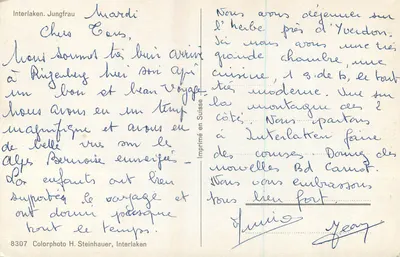 Interlaken. Jungfrau
Mardi
Chers Tous,
Nous sommes très bien arrivé
à Ringenberg hier soir après
un bon et beau voyage.
Nous avons eu un temps
magnifique et avons eu
de belle vue son le
Alpes Bernoise enneigés.
Les enfants ont bien
supportés le voyage et
ont dormi presque
tout le temps.
8307 Colorphoto H. Steinhauer, Interlaken
Imprimé en Suisse
Nous avons déjeuner sur
l'herbe près d'Yverdon.
Ici nous avons une très
grande chambre, une
cuisine, 1 s de b, le tout
très moderne. Vue sur
la montagne des 2
côté. Nous partons
à Interlaken faire
des courses. Donnez des
nouvelles Bd Carnot.
Nous vous embrassons
tous bien fort.
Jean